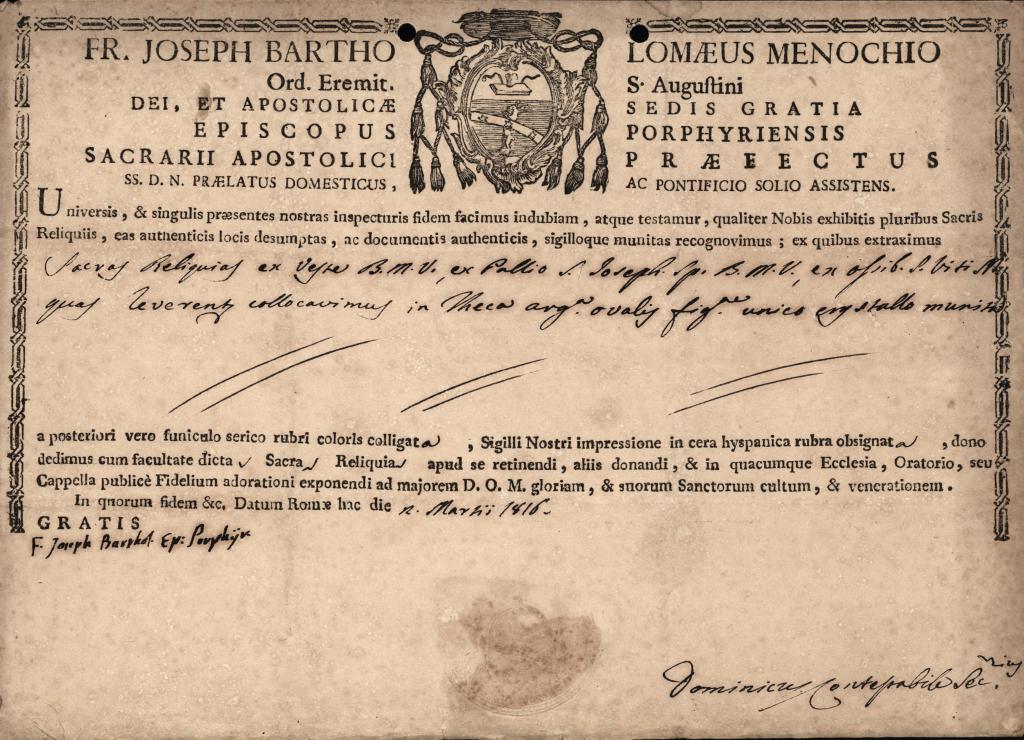 FR. JOSEPH BARTHO LOMÆUS MENOCHIO
Ord. Eremit. S. Auguſtini
DEI, ET APOSTOLICÆ SEDIS GRATIA
EPISCOPUS PORPHYRIENSIS
SACRARII APOSTOLICI PRÆFECTUS
SS. D. N. PRÆLATUS DOMESTICUS, AC PONTIFICIO SOLIO ASSISTENS.
Universis, & singulis præsentes nostras inspecturis fidem facimus indubiam, atque testamur, qualiter Nobis exhibitis pluribus Sacris
Reliquiis, eas authenticis locis desumptas, ac documentis authenticis, sigilloque munitas recognovimus; ex quibus extraximus
Sacras Reliquias ex Veste B.M.V., ex Pallio S. Joseph Sp. B.M.V., ex ossib. S. Viti M.
quas reverenty collocavimus in Theca arg.ᵃ ovalis fig.ᵃᵉ unico crystallo munit
a posteriori vero funiculo serico rubri coloris colligata, Sigilli Nostri impressione in cera hyspanica rubra obsignata, dono
dedimus cum facultate dictas Sacras Reliquias apud se retinendi, aliis donandi, & in quacumque Ecclesia, Oratorio, seu
Cappella publicè Fidelium adorationi exponendi ad majorem D. O. M. gloriam, & suorum Sanctorum cultum, & venerationem.
In quorum fidem &c. Datum Romæ hac die Martii 1816.
GRATIS
F. Joseph Barthol. Ep: Porphyr
Dominicus Contestabile Sec.rius